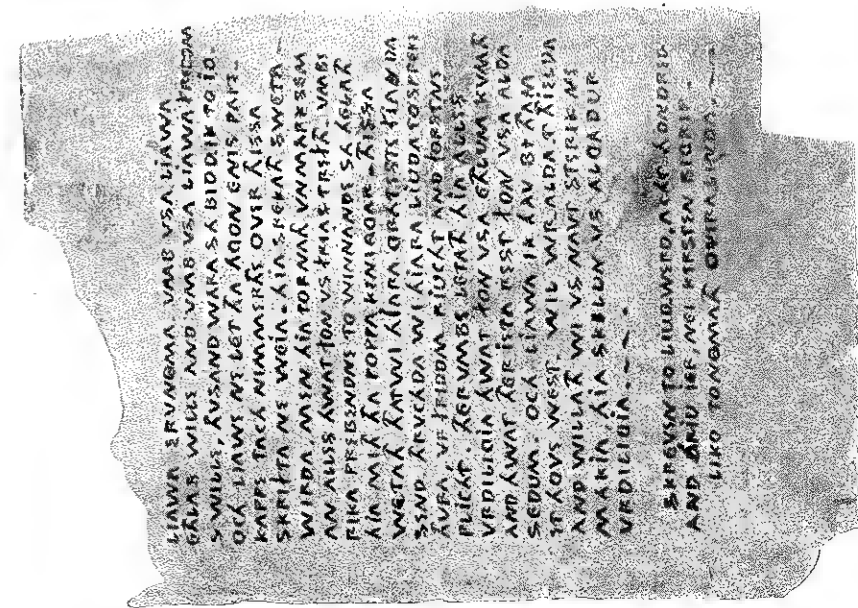 LIAWA ERVNOMA VMB VSA LIAWA
EÞLAS WILLE AND VMB VSA LIAWA FRIDOM
S WILLE, ÞVSAND WARA SA BIDDIK TO IO.
OCH LIAWE NE LET ÞA AGON ENIS PAPE-
KAPPE TACH NIMMERÞE OVIR ÞISSA
SKRIFTA NE WEIA. HIA SPREKAÞ SWETA
WIRDA. MEN HIA TORNAÞ VNMARKSEM
AN ALLES HWAT FON VS FRIAS TREFÞ. VMBE
RIKA PREBENDNE TO WINNANDE SA HELAÞ
HIA MIÞ ÞA POPPA KENIGGAR. ÞISSA
WETAÞ ÞAT WI HIARA GRATESTE FIANDA
SEND ÞRVCHDA WI HIARA LIUDA TO SPREKE
ÞVRA, VR FRIDOM RIUCHT AND FORSTNE
PLICHT. ÞERVMBE LETAÞ HIA ALLES
VRDILIGIA HWAT FON VSA EÞLUM KVMÞ
AND HWAT ÞER IETA REST FON VSA ALDA
SEDUM. OCH LIAWA IK HAV BI ÞAM
ET HOVE WEST. WIL WR.ALDA.T ÞIELDA
AND WILLAÞ WI VS NAVT STERIK NE
MAKIA HIA SKILUN VS ALGADUR
VRDILIGIA.
SKREVEN TO LIUDWERD, ACHT HONDRED
AND ÞRIU IER, NEI KERSTEN BIGRIP.
LIKO TONOMAÞ OVIRA LINDA.